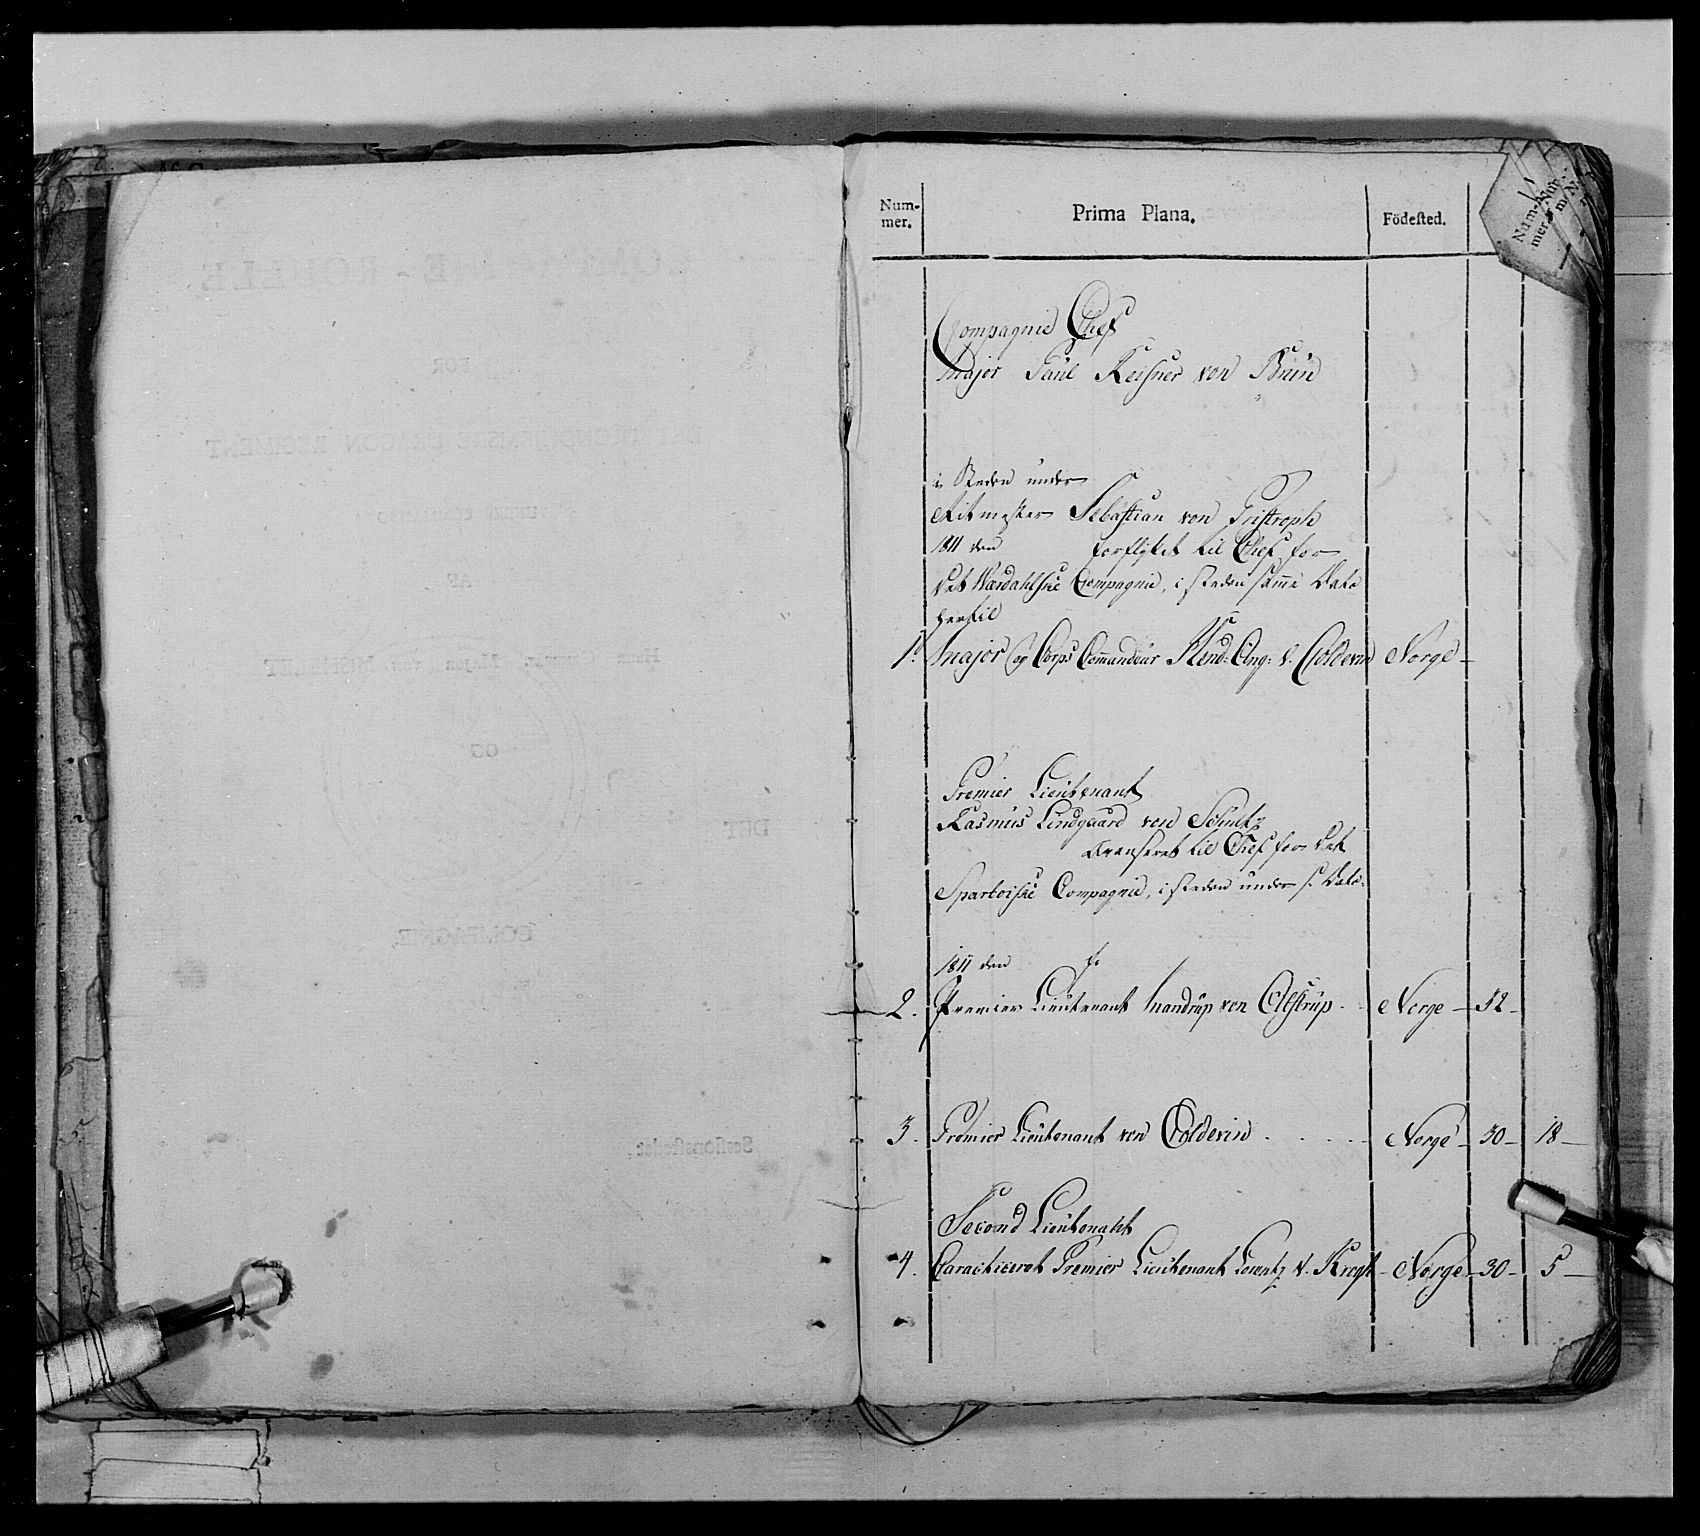 Num-
mer.
Prima Plana.
Födested.
Compagnie Chef
Major Paul Reisner von Bruun
i Steden under
Ritmester Sebastian von Tristroph
1811 den forflyttet til Chef for
det Værdahlske Compagnie, i steden samme Dato
hertil
1. Major og Corps Commandeur v. Coldevin Norge
Premier Lieutenant
Rasmus Lindgaard von Schultz
Avanseret til Chef for det
Sparboiske Compagnie, i steden under s. Dato.
1811 den
2. Premier Lieutenant Mandrup von Elstrup Norge 32
3. Premier Lieutenant von Coldevin Norge 30 18
Second Lieutenant
4. Caracticeret Premier Lieutenant Lorentz v. Krogh Norge 30 5